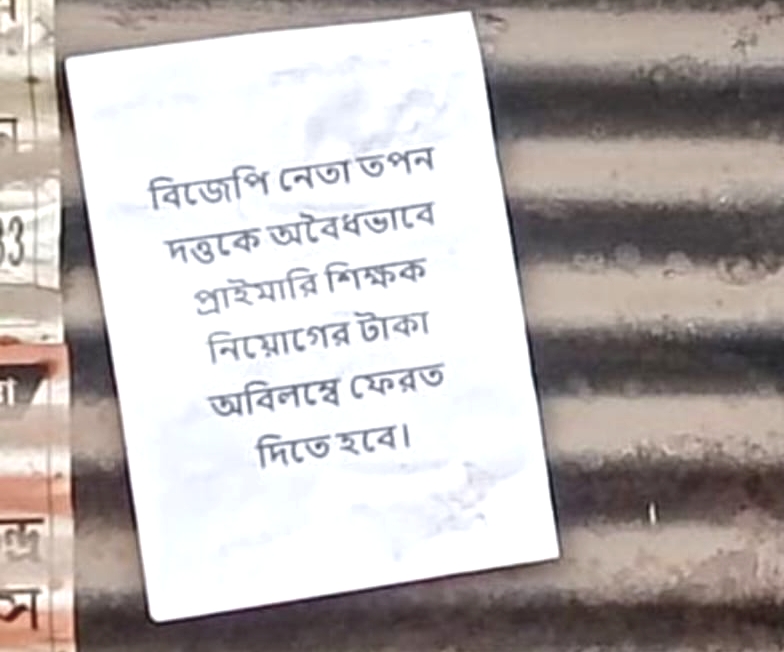 বিজেপি নেতা তপন
দত্তকে অবৈধভাবে
প্রাইমারি শিক্ষক
নিয়োগের টাকা
অবিলম্বে ফেরত
দিতে হবে।
33
ন্দ্র
স